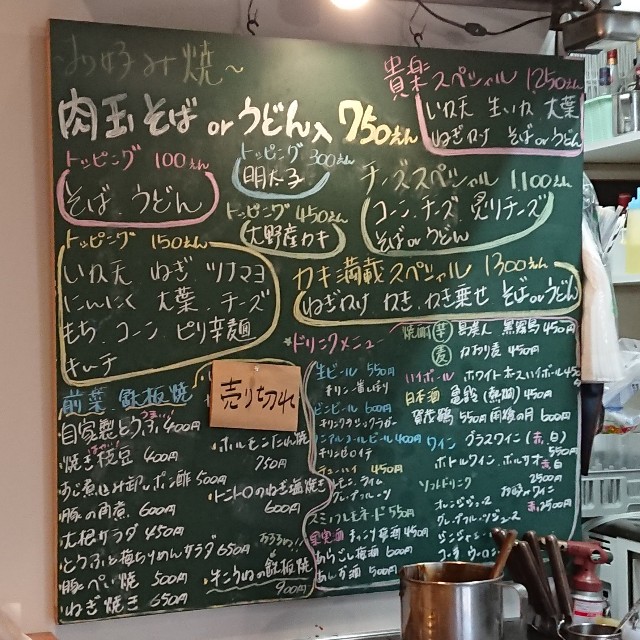 お好み焼~
肉玉そば or うどん入 750えん
貴楽スペシャル 1250えん
いか天 生いか 大葉
ねぎかけ そば or うどん
トッピング 100えん
そば、うどん
トッピング 300えん
明太子
トッピング 450えん
大野産カキ
チーズスペシャル 1100えん
コーン、チーズ 炙りチーズ
そば or うどん
トッピング 150えん
いか天 ねぎ ツナマヨ
にんにく 大葉、チーズ
もち、コーン、ピリ辛麺
キムチ
カキ満載スペシャル 1300えん
ねぎかけ かき、かき乗せ そば or うどん
前菜 鉄板焼
売り切れ
自家製とうふ 400円
焼き枝豆 400円
あじ煮込み卸しポン酢 500円
豚の角煮 600円
大根サラダ 450円
とうふと梅ちりめんサラダ 650円
豚ぺい焼 500円
ねぎ焼き 650円
ホルモンたれ焼
750円
トントロのねぎ塩焼き
600円
900円
ドリンクメニュー
生ビール 550円
キリン一番しぼり
ビンビール 600円
キリンクラシックラガー
ノンアルコールビール 400円
キリンゼロイチ
チューハイ 450円
レモン、ライム
グレープフルーツ
スミノフレモネード 550円
果実酒
あらごし梅酒 600円
あんず酒 500円
焼酎 芋 黒霧島 450円
麦 かおり麦 450円
ハイボール ホワイトホースハイボール 450
日本酒 亀齢(熱燗) 450円
賀茂鶴 550円 雨後の月 600円
ワイン グラスワイン(赤、白)
550円
ボトルワイン、ボルドー 赤 白
2500円
ソフトドリンク
オレンジジュース
グレープフルーツジュース
ジンジャー
コーラ ウーロン